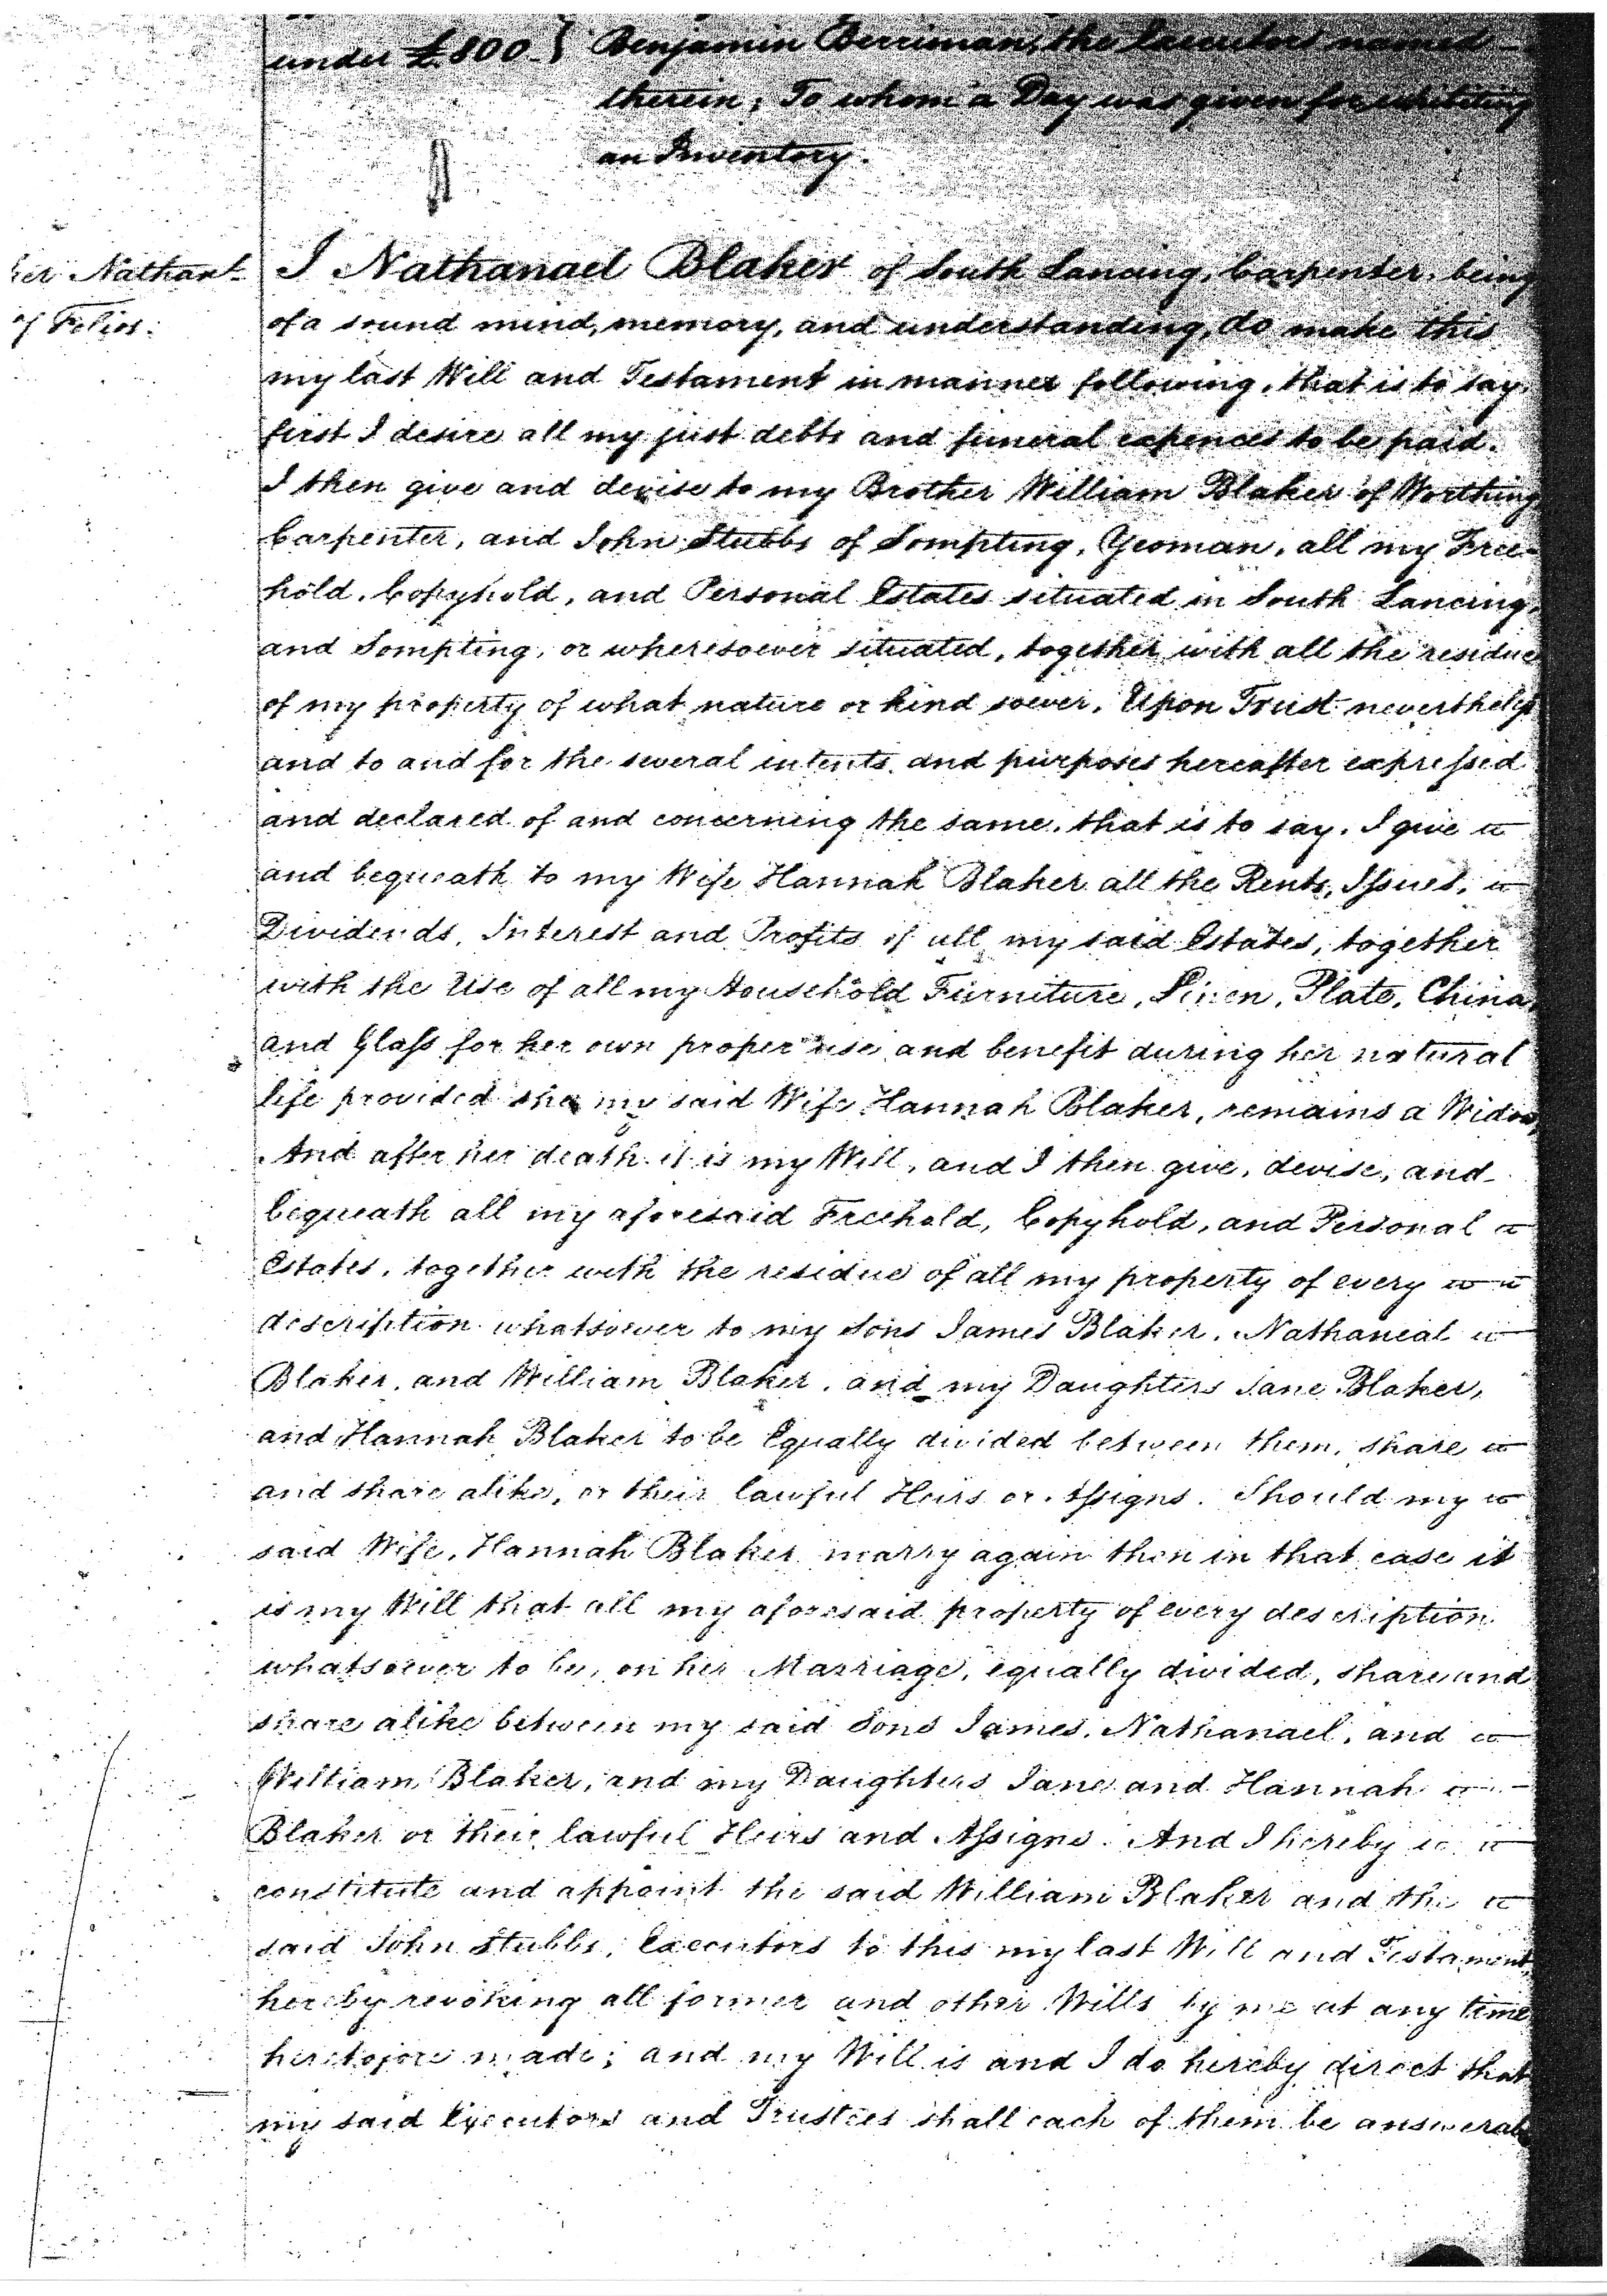 under £800 } Benjamin Berriman, the Executors named
therein; To whom a Day was given for exhibiting
an Inventory.
I Nathanael Blaker of South Lancing, Carpenter, being
er Nathanl.
of a sound mind, memory, and understanding, do make this
of Folios:
my last Will and Testament in manner following, that is to say,
first I desire all my just debts and funeral expences to be paid.
I then give and devise to my Brother William Blaker of Worthing
Carpenter, and John Stubbs of Sompting, Yeoman, all my Free-
hold, Copyhold, and Personal Estates situated in South Lancing,
and Sompting, or wheresoever situated, together with all the residue
of my property of what nature or kind soever, Upon Trust nevertheless
and to and for the several intents and purposes hereafter expressed
and declared of and concerning the same, that is to say, I give
and bequeath to my Wife Hannah Blaker all the Rents, Issues,
Dividends, Interest and Profits of all my said Estates, together
with the Use of all my Household Furniture, Linen, Plate, China,
and Glass for her own proper use and benefit during her natural
life provided she my said Wife Hannah Blaker, remains a Widow,
And after her death it is my Will, and I then give, devise, and
bequeath all my aforesaid Freehold, Copyhold, and Personal
Estates, together with the residue of all my property of every
description whatsoever to my Sons James Blaker, Nathaneal
Blaker, and William Blaker, and my Daughters Jane Blaker,
and Hannah Blaker to be Equally divided between them, share
and share alike, or their lawful Heirs or Assigns. Should my
said Wife, Hannah Blaker marry again then in that case it
is my Will that all my aforesaid property of every description
whatsoever to be, on her Marriage, equally divided, share and
share alike between my said Sons James, Nathanael, and
William Blaker, and my Daughters Jane and Hannah
Blaker or their lawful Heirs and Assigns. And I hereby
constitute and appoint the said William Blaker and the
said John Stubbs, Executors to this my last Will and Testament,
hereby revoking all former and other Wills by me at any time
heretofore made; and my Will is and I do hereby direct that
my said Executors and Trustees shall each of them be answerab